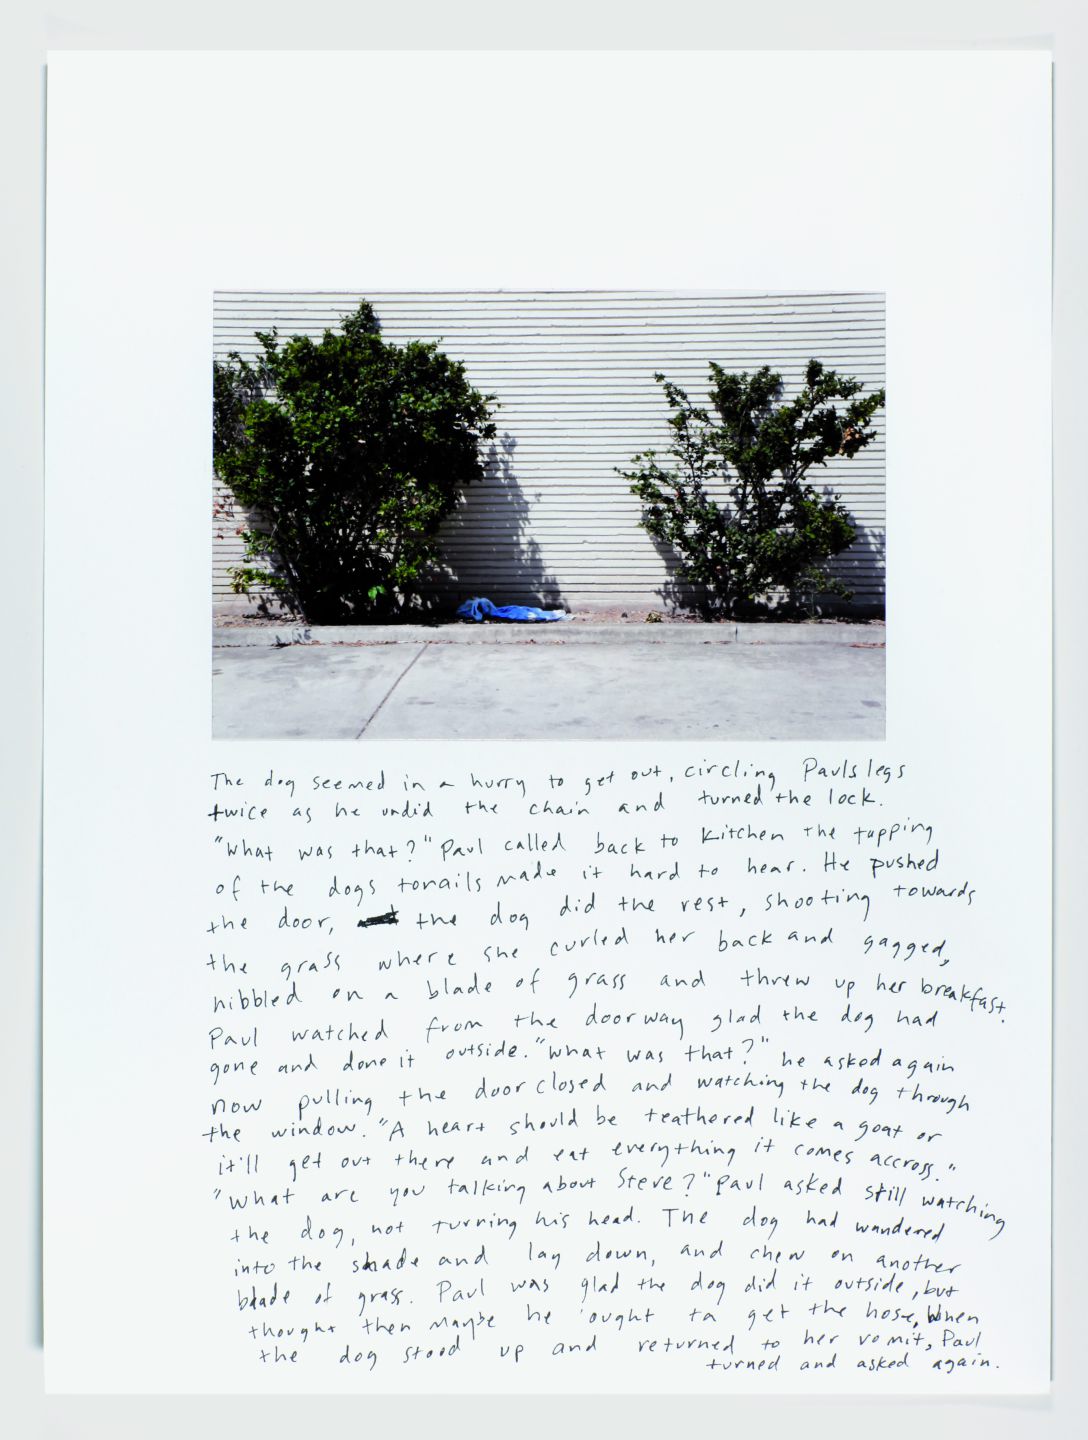 The dog seemed in a hurry to get out, circling Pauls legs
twice as he undid the chain and turned the lock.
"What was that?" Paul called back to kitchen the tapping
of the dogs tonails made it hard to hear. He pushed
the door, the dog did the rest, shooting towards
the grass where she curled her back and gagged,
nibbled on a blade of grass and threw up her breakfast.
Paul watched from the doorway glad the dog had
gone and done it outside. "What was that?" he asked again
now pulling the door closed and watching the dog through
the window. "A heart should be teathored like a goat or
it'll get out there and eat everything it comes accross."
"What are you talking about Steve?" Paul asked still watching
the dog, not turning his head. The dog had wandered
into the shade and lay down, and chew on another
blade of grass. Paul was glad the dog did it outside, but
thought then maybe he ought ta get the hose, When
the dog stood up and returned to her vomit, Paul
turned and asked again.